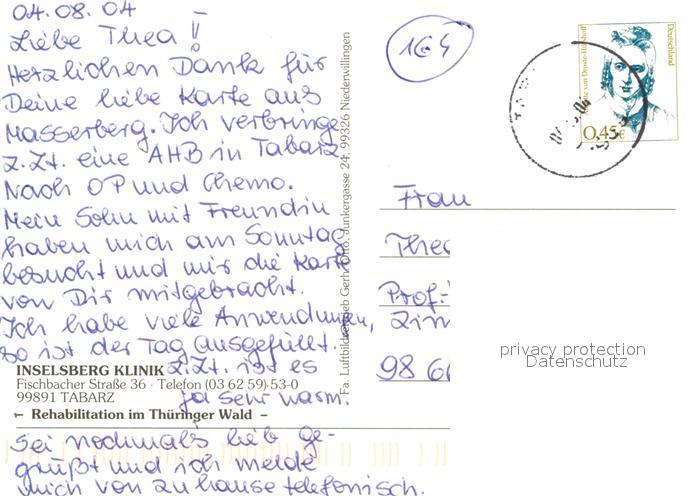 04.08.04
Liebe Thea!
Herzlichen Dank für
Deine liebe Karte aus
Masserberg. Ich verbringe
z.Zt. eine AHB in Tabarz
Nach OP und Chemo.
Mein Sohn mit Freundin
haben mich am Sonntag
besucht und mir die Karte
von Dir mitgebracht.
Ich habe viele Anwendungen,
so ist der Tag ausgefüllt.
z.Zt. ist es
ja sehr warm.
INSELSBERG KLINIK
Fischbacher Straße 36 · Telefon (03 62 59) 53-0
99891 TABARZ
– Rehabilitation im Thüringer Wald –
Sei nochmals lieb ge-
grüßt und ich melde
mich von zuhause telefonisch.
Fa. Luftbildvertrieb Gerh. Otto, Junkergasse 24, 99326 Niederwillingen
1€ 4
Deutschland
von Droste-Hülshoff
0,45€
Frau
Thea
Prof.-
Zim
98 6
privacy protection
Datenschutz